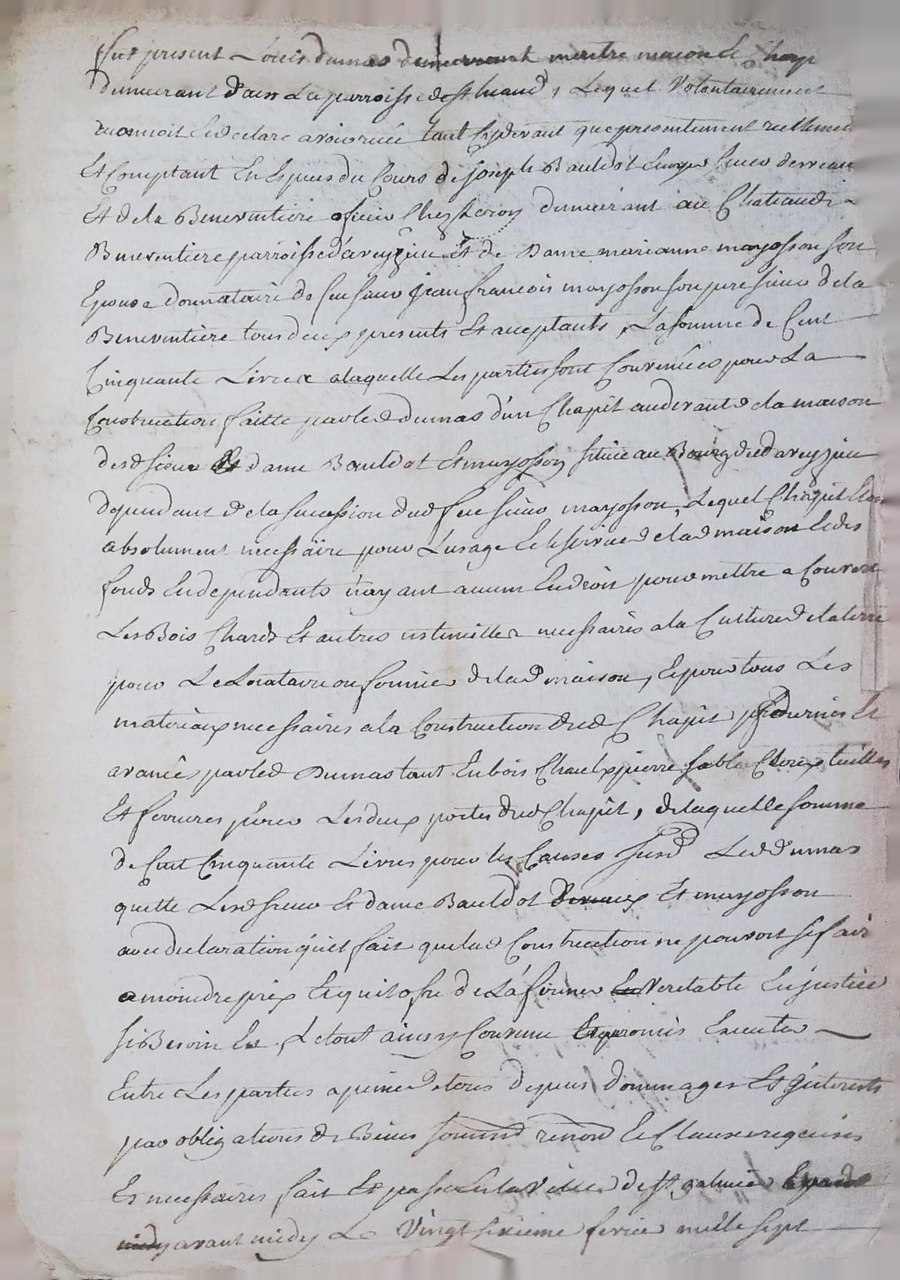 fut present Louis dumas demeurant maitre macon &
demeurant dans La parroisse de st medard, Lequel Volontairement
reconnoit et declare avoir receu tant Cydevant que presentement reellement
Et Comptant En Especes du Cours de Joseph Bauldot Ecuyer sieur
Et de la Beneventiere officier Chez le roy demeurant au Chateau de
Beneventiere parroisse d'aveyzieu Et de Dame marianne mayosson son
Epouse donnataire de feu sieur jean francois mayosson son pere sieur de la
Beneventiere tous deux presents Et acceptants, La somme de Cent
Cinquante Livres a laquelle Les parties sont Convenües pour La
Construction faitte par led dumas d'un Chapit au devant de la maison
desd sieur Et dame Bauldot Et mayosson sitüée au Bourg dud aveyzieu
dependant de la succession dud feu sieur mayosson, Lequel Chapit Etoit
absolument necessaire pour L'usage Et le service de lad maison Et des
fonds En dependants n'ayant aucun Endroit pour mettre a Couvert
Les Bois Chards Et autres ustenilles necessaires a la Culture de la terre
pour Le Locataire ou fermier de lad maison, Et pour tous Les
materiaux necessaires a la Construction dud Chapit fournis Et
avancés par led Dumas tant En bois Chaux pierre sable Cloux tuilles
Et ferrures pour Les deux portes dud Chapit, de laquelle somme
de Cent Cinquante Livres pour les Causes susd Led dumas
quitte Lesd sieur Et dame Bauldot Et mayosson
avec declaration qu'il fait que lad Construction ne pouvoit se faire
a moindre prix Et qu'il ofre de L'afirmer Veritable En justice
si Besoin Est, Le tout ainsy Convenu Et promis Executer
Entre Les parties a peine de tous depens dommages Et interests
par obligations de Biens soumis renon Et Clauses requises
Et necessaires fait Et passé En la Ville de st galmier
avant midy Le Vingt sixieme fevrier mille sept